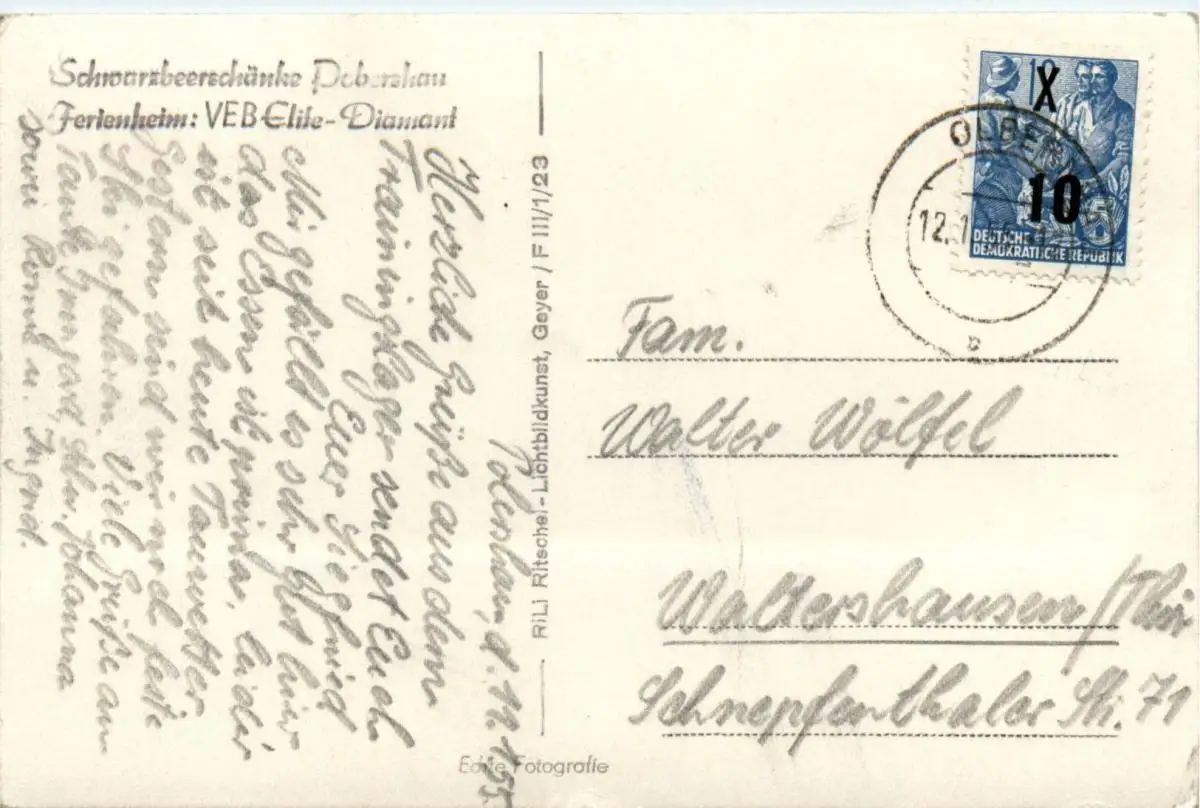 Schwarzbeerschänke Pobershau
Ferienheim: VEB Elite-Diamant
Pobershau, d. 12.1.55.
Herzliche Grüße aus dem
Trainingslager sendet Euch
Euer Siegfried
Mir gefällt es sehr gut hier
das Essen ist prima, leider
ist seit heute Tauwetter
Gestern sind wir noch feste
Ski gefahren. Viele Grüße an
Tante Irmgard, Johanna
sowie Romel u. Ingrid.
RiLi Ritschel-Lichtbildkunst, Geyer / F III/1/23
Echte Fotografie
X
10
5
DEUTSCHE
DEMOKRATISCHE REPUBLIK
OLBERNHAU
12.1.
Fam.
Walter Wölfel
Waltershausen/Thür
Schnepfenthaler Str. 71